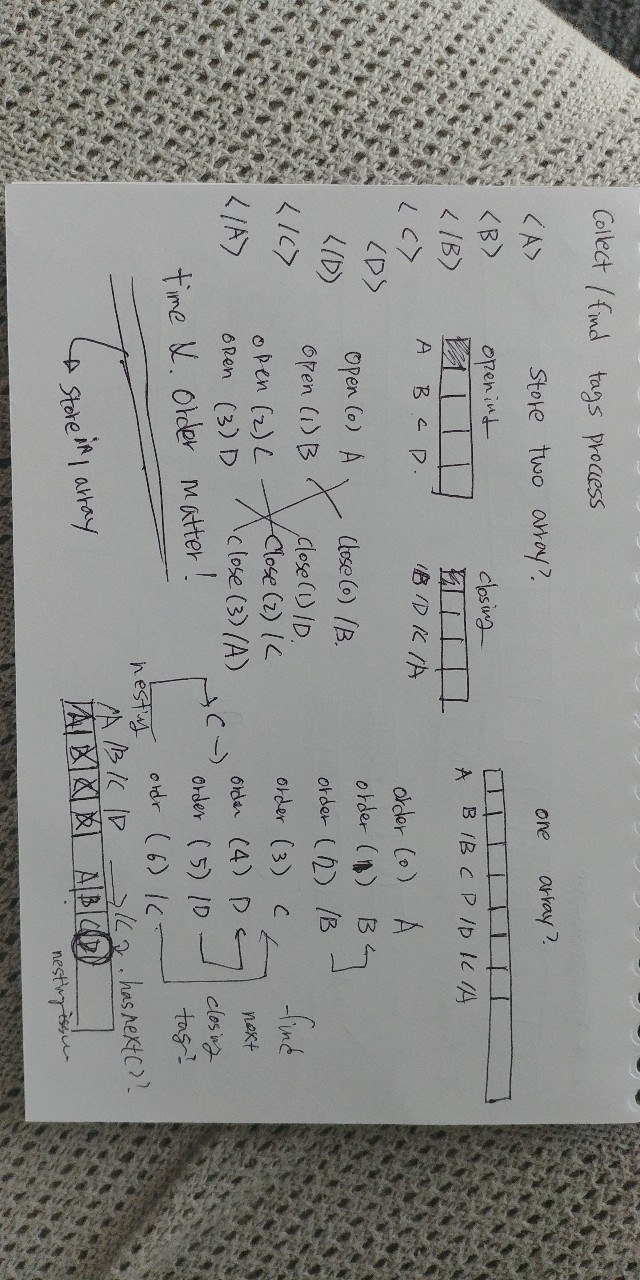 Collect / find tags process
<A>
<B>
</B>
<C>
<D>
</D>
</C>
</A>
store two array?
opening
A B C D.
closing
/B /D /C /A
open (0) A
open (1) B
open (2) C
open (3) D
close (0) /B.
close (1) /D.
close (2) /C
close (3) /A)
time &. order matter!
store in 1 array
one array?
A B /B C D /D /C /A
order (0) A
order (1) B
order (2) /B
order (3) C
order (4) D
order (5) /D
ordr (6) /C
find
next
closing
tag?
C →
nesting
/A /B /C /D → /C . hasnext()?
A X X X A B C D
nesting issue